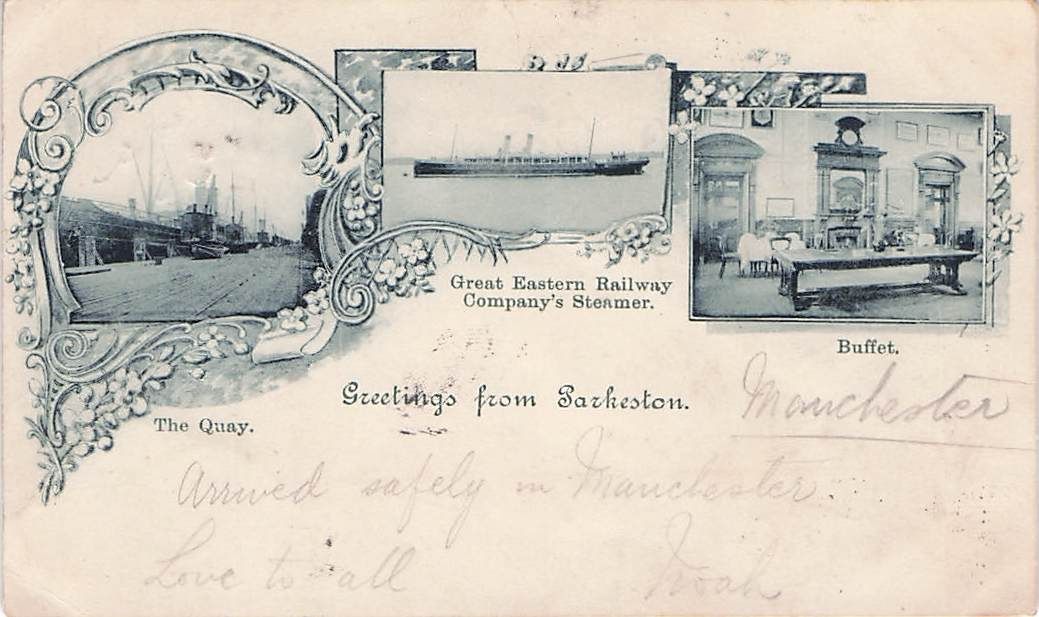 Great Eastern Railway
Company's Steamer.
Buffet.
Greetings from Parkeston.
The Quay.
Manchester
Arrived safely in Manchester
Love to all
Noah